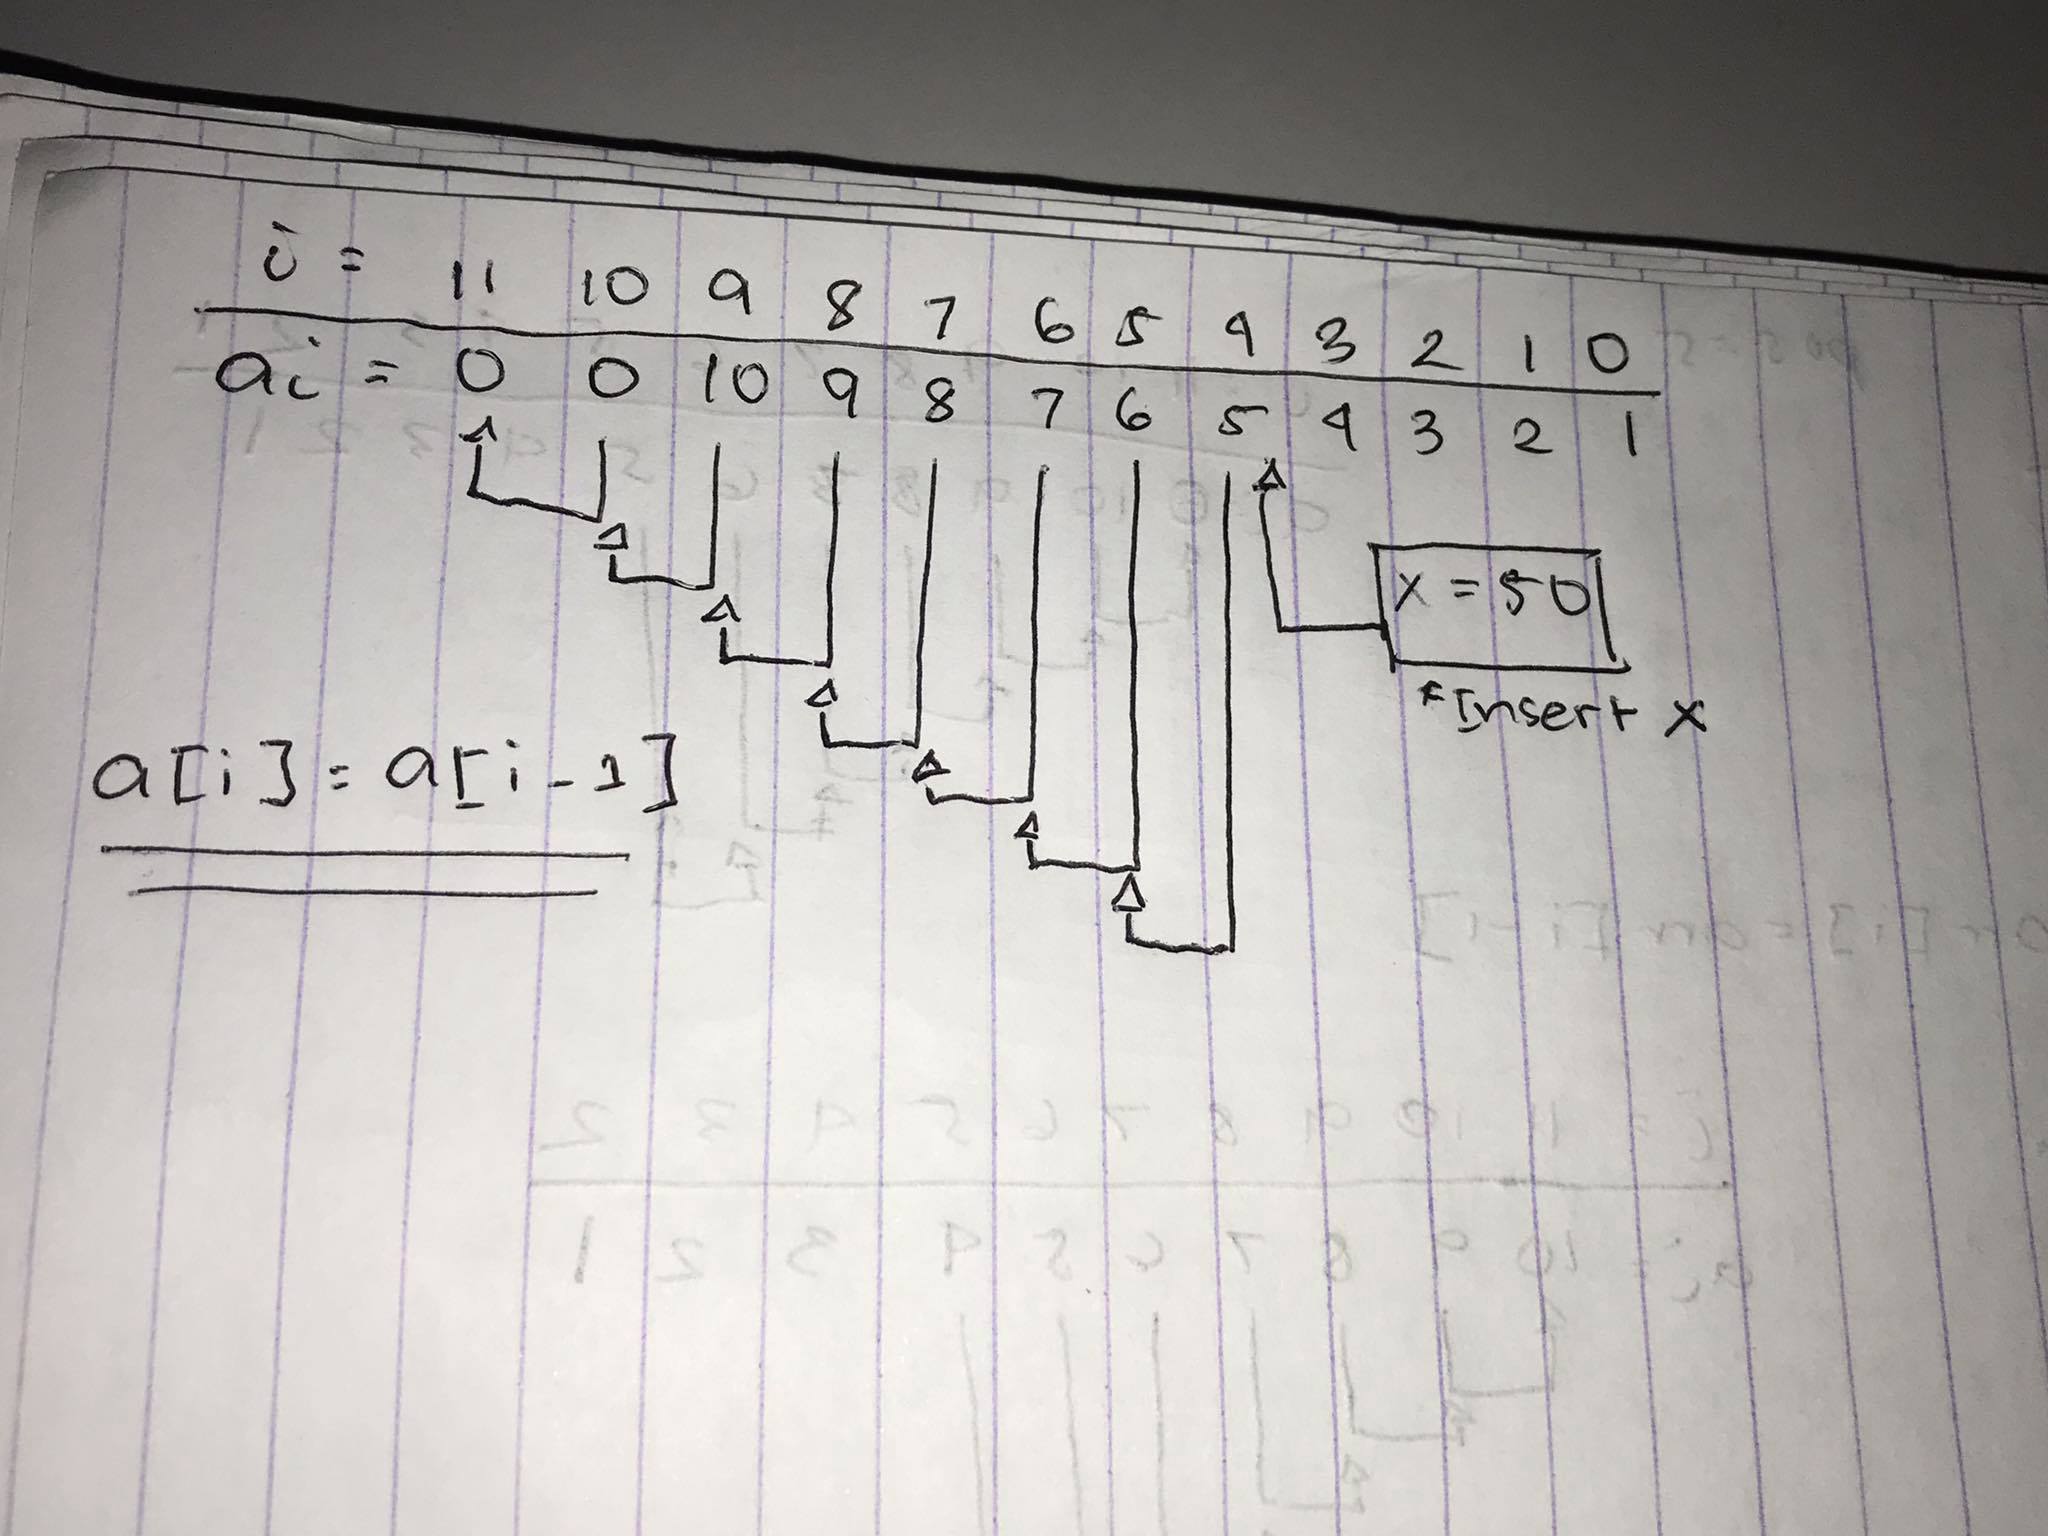 i = 11 10 9 8 7 6 5 4 3 2 1 0
ai = 0 0 10 9 8 7 6 5 4 3 2 1
x = 50
*Insert x
a[i] = a[i-1]